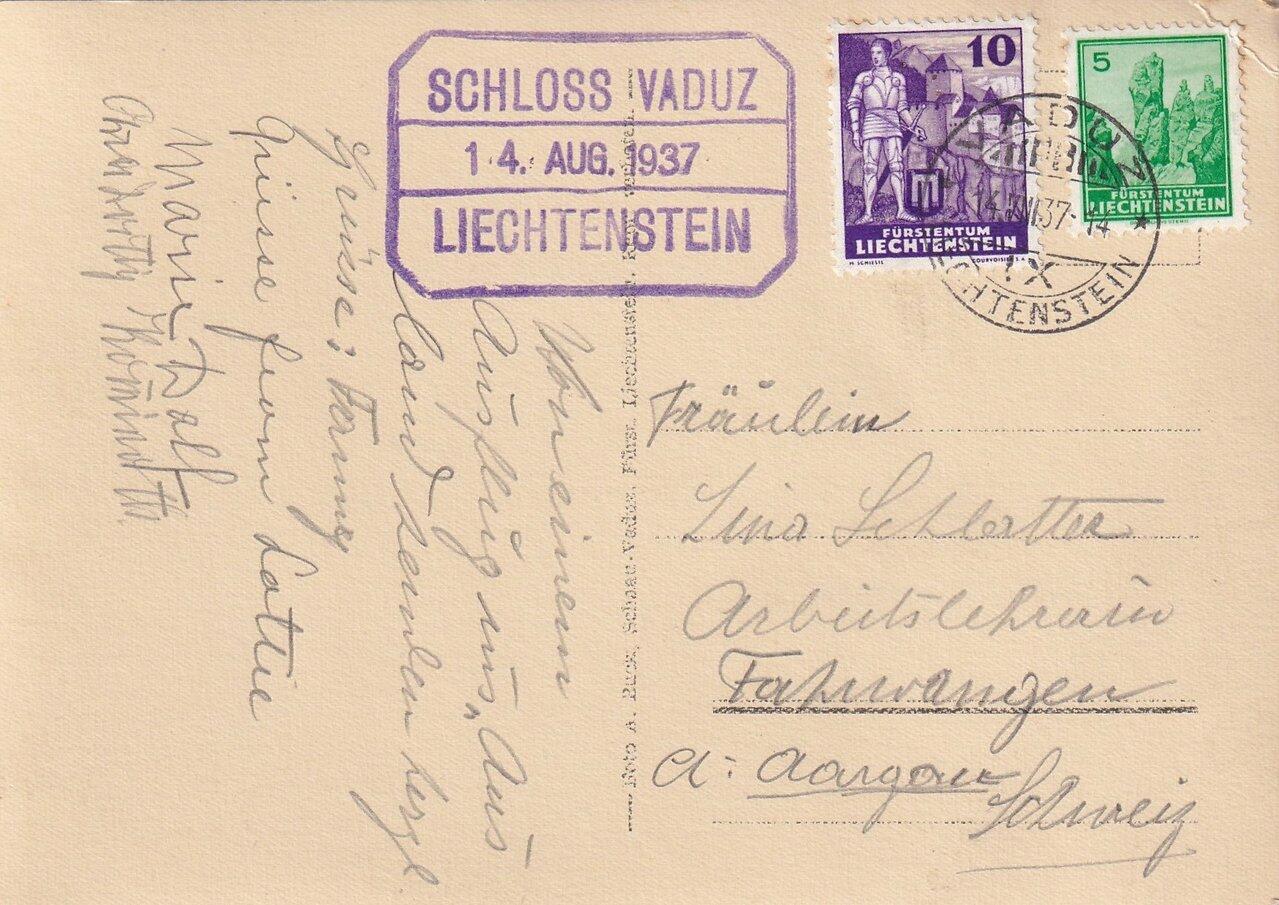 SCHLOSS VADUZ
14. AUG. 1937
LIECHTENSTEIN
10
FÜRSTENTUM
LIECHTENSTEIN
COURVOISIER S.A.
5
FÜRSTENTUM
LIECHTENSTEIN
VADUZ
14.VIII.37-14
LIECHTENSTEIN
Von einem
Ausflug ins "Aus
land" senden herzl.
Grüsse:
Grüsse from Lottie
Marie
Foto A. Buck, Schaan-Vaduz, Fürst. Liechtenstein.
Fräulein
Lina Schlatter
Arbeitslehrerin
Fahrwangen
Ct: Aargau
Schweiz